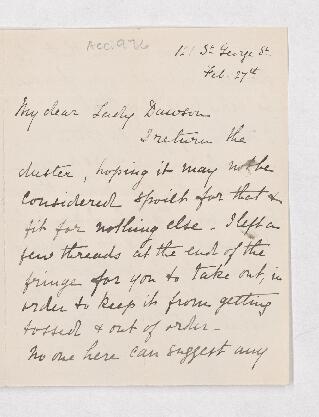 Acc. 976
121 St. George St.
Feb. 27th
My dear Lady Dawson
I return the
duster, hoping it may not be
considered spoilt for that &
fit for nothing else. I left a
few threads at the end of the
fringe for you to take out, in
order to keep it from getting
tossed & out of order -
No one here can suggest any